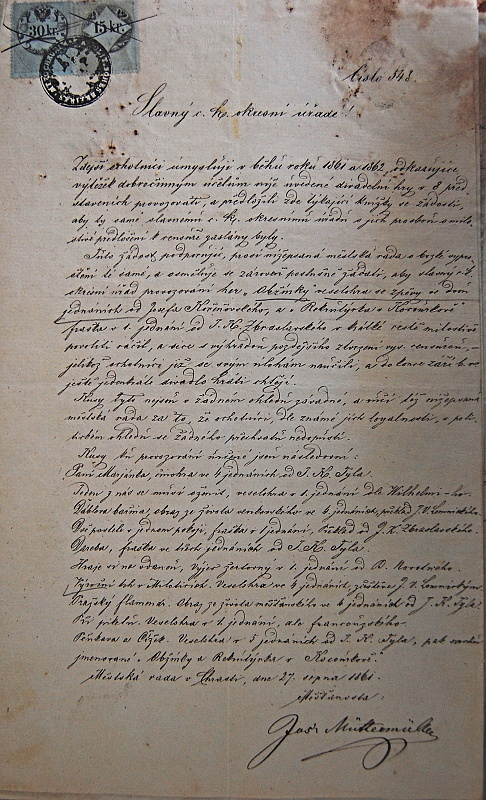 30 kr. 15 kr.
Číslo 348.
Slavný c. k. okresní úřade!
Zdejší ochotníci umyslejí v běhu roku 1861 a 1862, odkazujíce
výtěžek dobročinným účelům níže uvedené divadelní hry v 8 před
staveních provozovati, a předložili zde týkající knížky se žádostí,
aby ty samé slavnému c. k. okresnímu úřadu s jich prosbou o milo
stivé předložení k censuře zaslány byly.
Tuto žádost podporujíc, prosí nížepsaná městská rada o brzké vypo
řádání té samé, a osměluje se zároveň poslušně žádati, aby slavný c. k.
okresní úřad provozování her „Obžínky" veselohra se zpěvy ve dvou
jednáních od Josefa Kořenovského, a „Rekrutýrka v Kocourkově"
fraška v 1 jednání od J. K. Zbraslavského v krátké cestě milostivě
povoliti ráčil, a sice s výhradou pozdějšího
jelikož ochotníci již se svým úlohám naučili, a do konce září b. r.
ještě jedenkráte divadlo hráti chtějí.
Kusy tyto nejsou v žádném ohledu závadné, a ručí též nížepsaná
městská rada za to, že ochotníci, dle známé jich loyalnosti, v poli
tickém ohledu se žádného přechvatu nedopustí.
Kusy ku provozování určené jsou následovní:
Paní Marjánka, činohra ve 4 jednáních od J. K. Tyla.
Jeden z nás se musí oženit, veselohra v 1 jednání dle Wilhelmi-ho.
Ďáblova bašina, obraz ze života venkovského ve 4 jednáních, překlad
Dvě postele v jednom pokoji, fraška v 1 jednání, překlad od J. K. Zbraslavského.
Čarda, fraška ve třech jednáních od J. K. Tyla.
Hraje se na vdanou, Výjev žertovný v 1 jednání od
Vyzvání ve 4 jednáních,
Pražský flamendr. Obraz ze života měšťanského ve 4 jednáních od J. K. Tyla.
Při piketu. Veselohra v 1 jednání, dle francouzského.
Pěnkava a Čížek. Veselohra v 5 jednáních od J. K. Tyla, pak svrchu
jmenované „Obžínky a Rekrutýrka v Kocourkově.
Městská rada v Chrasti, dne 27. srpna 1861.
Měšťanosta:
Jos. Müttermüller